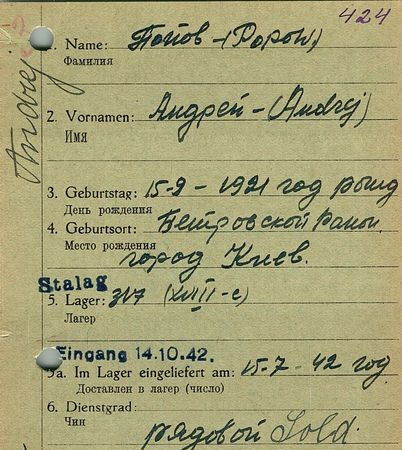 424
Andrej
1. Name: Попов-(Popow)
Фамилия
2. Vornamen: Андрей-(Andrej)
Имя
3. Geburtstag: 15-9-1921 год рожд
День рождения
4. Geburtsort: Петровской район.
Место рождения
город Киев.
Stalag
5. Lager: 317 (XVIII-c)
Лагер
Eingang 14.10.42.
5a. Im Lager eingeliefert am: 15-7-42 год
Доставлен в лагер (число)
6. Dienstgrad:
Чин
рядовой Sold.